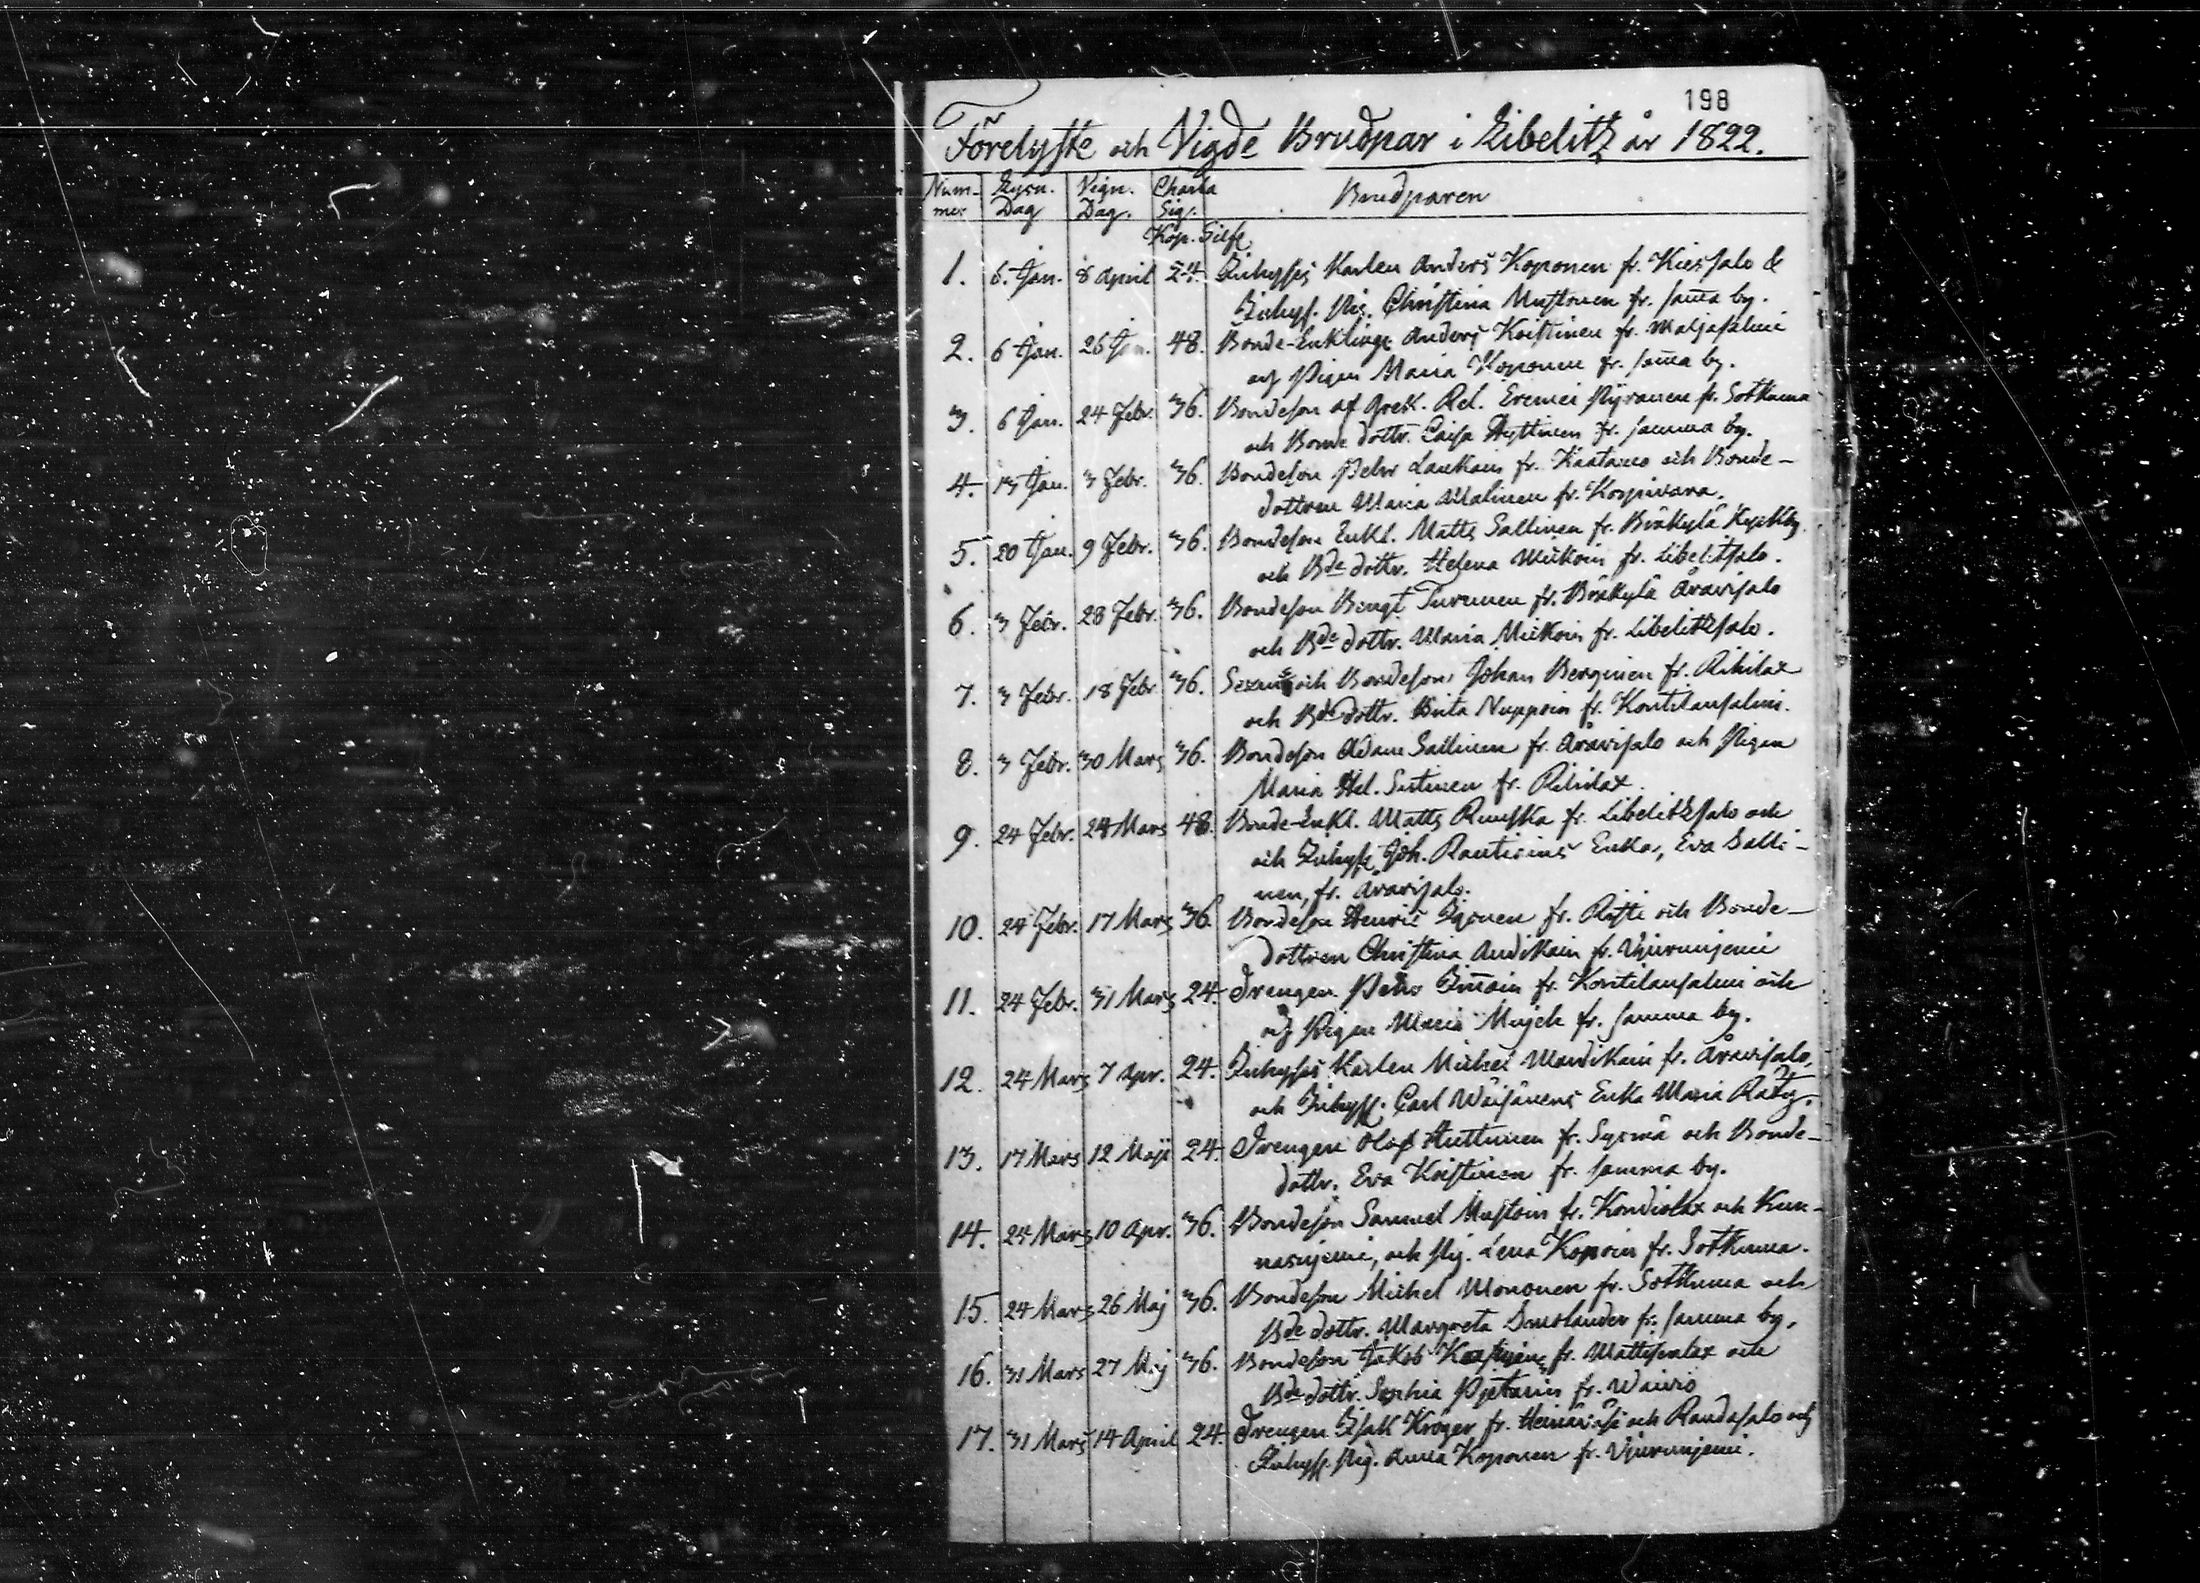 198
Förelyste och Vigde Brudpar i Libelitz år 1822.
Num- Lysn. Vign. Charta Brudparen
mer Dag Dag. Sig.
Kop. Silfr.
1. 6. Jan. 8 April 24. Inhyses Karlen Anders Koponen fr. Kiessalo &
Inhys. Pig. Christina Mustonen fr. sama by.
2. 6 Jan. 26 Jan. 48. Bonde-Enklinge Anders Koistinen fr. Maljasalmi
och Pigan Maria Koponen fr. sama by.
3. 6 Jan. 24 Febr. 36. Bondeson af Grek. Rel. Eremei Pyranen fr. Sotkuma
och Bonde dottr. Caisa Hyttinen fr. samma by.
4. 13 Jan. 3 Febr. 36. Bondeson Petter Laukain fr. Kaatamo och Bonde-
dottren Maria Malinen fr. Kospivara.
5. 20 Jan. 9 Febr. 36. Bondeson Enkl. Matts Sallinen fr. Bräkylä Kyrkby.
och Bde dottr. Helena Mickoin fr. Libelitzsalo.
6. 3 Febr. 28 Febr. 36. Bondeson Bengt Turunen fr. Bräkylä Åravisalo
och Bde dottr. Maria Mickoin fr. Libelitzsalo.
7. 3 Febr. 18 Febr. 36. och Bondeson Johan Berginen fr. Rihilax
och Bde dottr. Brita Nuppoin fr. Kontilansalmi.
8. 3 Febr. 30 Mars 36. Bondeson Adam Sallinen fr. Åravisalo och Pigan
Maria Hel. Sutinen fr. Rihilax.
9. 24 Febr. 24 Mars 48. Bonde-Enkl. Matts Ruuska fr. Libelitzsalo och
och Inhys. Joh. Rautiains Enka, Eva Salli-
nen, fr. Åravisalo.
10. 24 Febr. 17 Mars 36. Bondeson Henric Ikonen fr. Risti och Bonde-
dottren Christina Audikain fr. Vjurunjemi
11. 24 Febr. 31 Mars 24. Drengen Petter Immoin fr. Kontilansalmi och
och Pigan Maria fr. samma by.
12. 24 Mars 7 Apr. 24. Inhyses Karlen Michel Wardikain fr. Åravisalo,
och Inhys. Carl Wäisänens Enka Maria Räty.
13. 17 Mars 12 Maji 24. Drengen Olof Huttunen fr. Sysmä och Bonde-
dottr. Eva Koistinen fr. samma by.
14. 24 Mars 10 Apr. 36. Bondeson Samuel Mustoin fr. Kondiolax och Kun-
nasnjemi, och Pig. Lena Kopoin fr. Sotkuma.
15. 24 Mars 26 Maj 36. Bondeson Michel Mononen fr. Sotkuma och
Bde dottr. Margreta Smolander fr. samma by.
16. 31 Mars 27 Maj 36. Bondeson Jakob fr. Mattisenlax och
Bde dottr. Sophia Pjetarin fr. Waivio
17. 31 Mars 14 April 24. Drengen Isak Kröger fr. och Randasalo och
Inhys. Pig. Anna Koponen fr. Vjurunjemi.